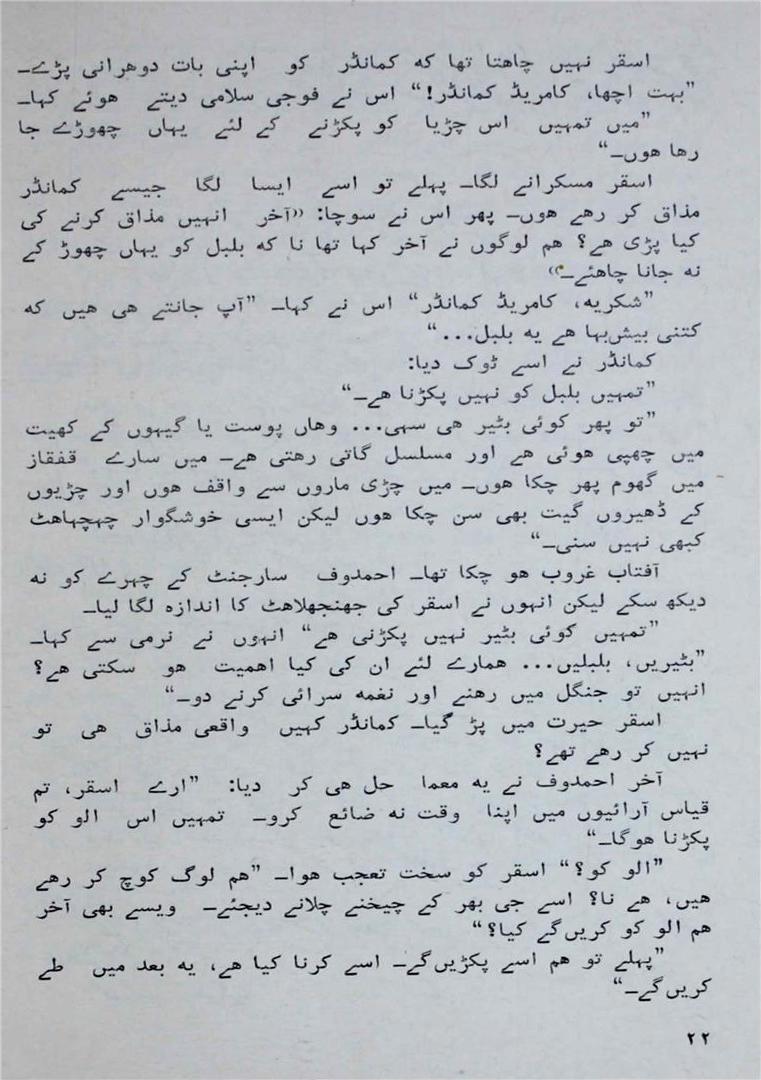 اسقر نہیں چاھتا تھا کہ کمانڈر کو اپنی بات دوھرانی پڑے۔
”بہت اچھا، کامریڈ کمانڈر!“ اس نے فوجی سلامی دیتے ھوئے کہا۔
”میں تمہیں اس چڑیا کو پکڑنے کے لئے یہاں چھوڑے جا
رھا ھوں۔“
اسقر مسکرانے لگا۔ پہلے تو اسے ایسا لگا جیسے کمانڈر
مذاق کر رھے ھوں۔ پھر اس نے سوچا: «آخر انہیں مذاق کرنے کی
کیا پڑی ھے؟ ھم لوگوں نے آخر کہا تھا نا کہ بلبل کو یہاں چھوڑ کے
نہ جانا چاھئے۔»
”شکریہ، کامریڈ کمانڈر“ اس نے کہا۔ ”آپ جانتے ھی ھیں کہ
کتنی بیش‌بہا ھے یہ بلبل...“
کمانڈر نے اسے ٹوک دیا:
”تمہیں بلبل کو نہیں پکڑنا ھے۔“
”تو پھر کوئی بٹیر ھی سہی... وھاں پوست یا گیہوں کے کھیت
میں چھپی ھوئی ھے اور مسلسل گاتی رھتی ھے۔ میں سارے قفقاز
میں گھوم پھر چکا ھوں۔ میں چڑی ماروں سے واقف ھوں اور چڑیوں
کے ڈھیروں گیت بھی سن چکا ھوں لیکن ایسی خوشگوار چہچہاھٹ
کبھی نہیں سنی۔“
آفتاب غروب ھو چکا تھا۔ احمدوف سارجنٹ کے چہرے کو نہ
دیکھ سکے لیکن انہوں نے اسقر کی جھنجھلاھٹ کا اندازہ لگا لیا۔
”تمہیں کوئی بٹیر نہیں پکڑنی ھے“ انہوں نے نرمی سے کہا۔
”بٹیریں، بلبلیں... ھمارے لئے ان کی کیا اھمیت ھو سکتی ھے؟
انہیں تو جنگل میں رھنے اور نغمہ سرائی کرنے دو۔“
اسقر حیرت میں پڑ گیا۔ کمانڈر کہیں واقعی مذاق ھی تو
نہیں کر رھے تھے؟
آخر احمدوف نے یہ معما حل ھی کر دیا: ”ارے اسقر، تم
قیاس آرائیوں میں اپنا وقت نہ ضائع کرو۔ تمہیں اس الو کو
پکڑنا ھوگا۔“
”الو کو؟“ اسقر کو سخت تعجب ھوا۔ ”ھم لوگ کوچ کر رھے
ھیں، ھے نا؟ اسے جی بھر کے چیخنے چلانے دیجئے۔ ویسے بھی آخر
ھم الو کو کریں‌گے کیا؟“
”پہلے تو ھم اسے پکڑیں‌گے۔ اسے کرنا کیا ھے، یہ بعد میں طے
کریں‌گے۔“
۲۲